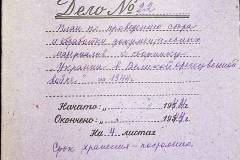 Дело № 22
План по проведению сбора
и обработки документальных
материалов к сборнику
„Украина в Великой отечественной
войне" за 1944г.
Начато: „ 1944г.
Окончено „ 1944г.
На 4 листах
Срок хранения - постоянно.